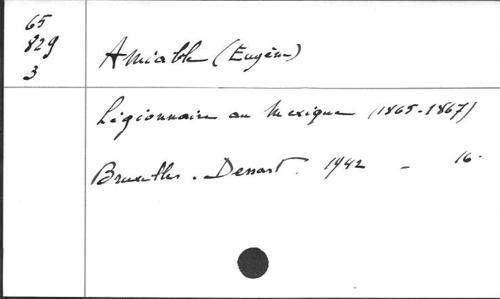 65
829
3
Amiable (Eugène)
Légionnaire au Mexique (1865-1867)
Bruxelles. Dessart. 1942 - 16.